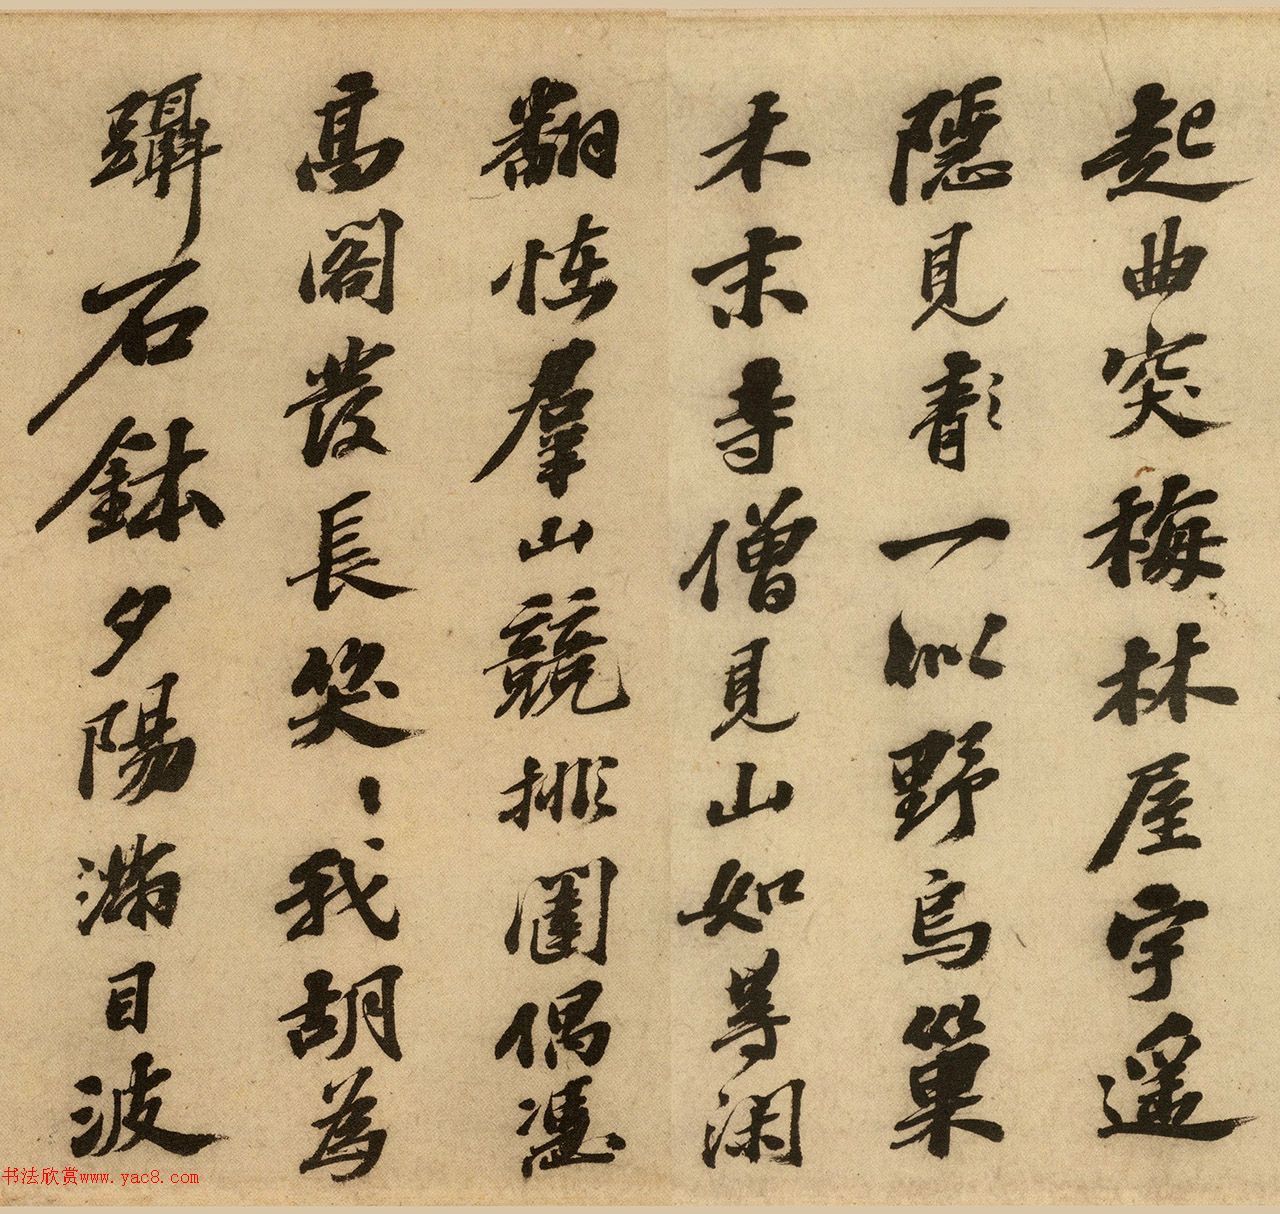 起曲突梅林屋宇遥
隱見一似野鳥巢
木末寺僧見山如等閑
翻怪羣山競排闥偶憑
髙閣發長笑〻我胡為
躡石鉢夕陽滿目波
书法欣赏www.yac8.com